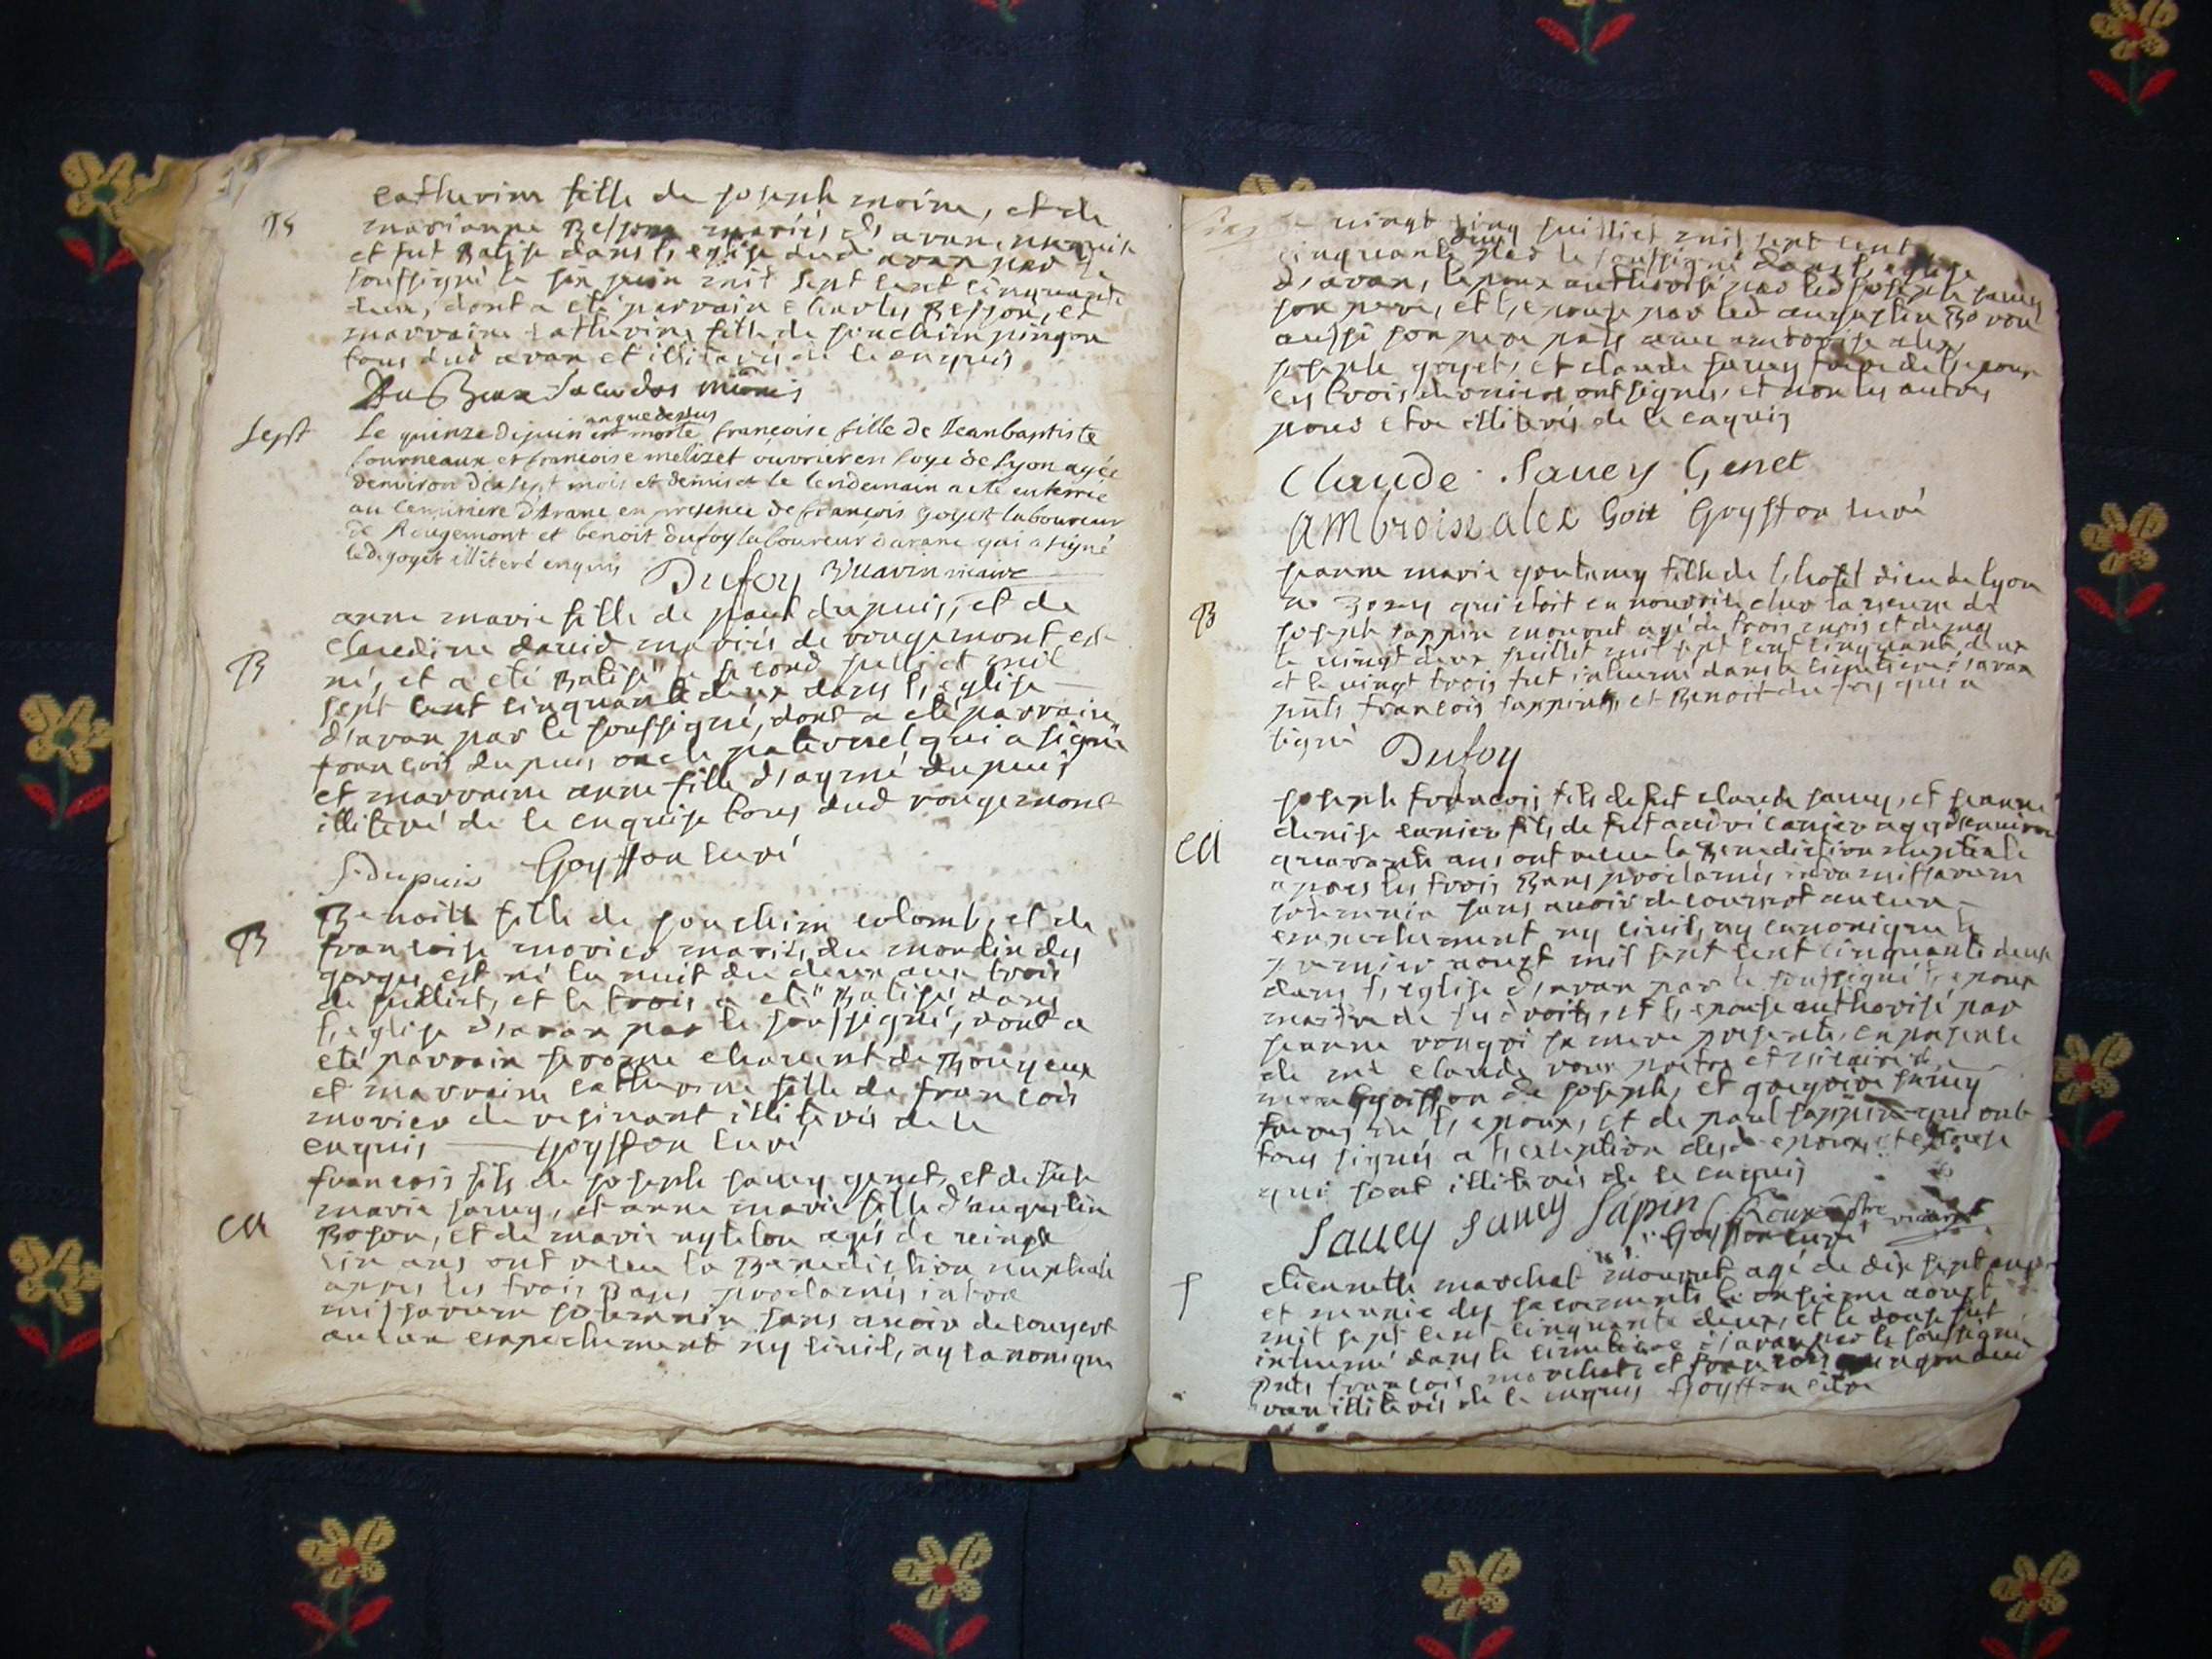 B
catherine fille de joseph moine, et de
marianne Besson mariés d'aran, naquit
et fut Batise dans l'eglise dud aran par le
soussigné le six juin mil sept cent cinquante
deux, dont a eté parrain charles Besson, et
marraine catherine fille de jouchim pingon
tous dud aran et illiterés de le enquis
Sepst
Le quinze de juin an que dessus est morte francoise fille de Jean baptiste
fourneaux et francoise melizet ouvrier en soye de Lyon agée
denviron dix sept mois et demis et le lendemain a été enterrée
au cemitiere d'arane en presence de françois goyet laboureur
de Rougemont et benoit dufoy laboureur d'arane qui a signé
led goyet illiteré enquis Dufoy vicaire
B
anne marie fille de paul dupuis, et de
claudine david mariés de rougemont est
né, et a eté Batisé le second juillet mil
sept cent cinquante deux dans l'eglise
d'aran par le soussigné, dont a eté parrain
francois dupuis oncle paternel qui a signé
et marraine anne fille d'aymé dupuis
illiteré de le enquise tous dud rougemont
f. dupuis Goyffon curé
B
Benoite fille de jouchim colomb, et de
francoise morier mariés du moulin des
gorges est né la nuit du deux aux trois
de juilliet, et le trois a eté Batisé dans
l'eglise d'aran par le soussigné, dont a
eté parrain jerome charvent de Bouyeux
et marraine catherine fille de francois
morier de resinant illiterés de le
enquis Goyffon curé
CM
francois fils de joseph sauey genet, et de fute
marie sauey, et anne marie fille d'augustin
Boron, et de marie nyteton agés de vingt
cin ans ont receu la Benediction nuptiale
apres les trois Bans proclamés intra
missarum solemnia sans avoir decouvert
aucun empechement ny civil, ny canonique
le vingt cinq juilliet mil sept cent
cinquante deux par le soussigné dans l'eglise
d'aran, l'epoux authorisé par led joseph sauey
son pere, et l'epouse par led augustin Boron
aussi son pere pnts avec ambroise alex
joseph goyet, et claude sauey frere de l'epoux
ces trois derniers ont signés, et non les autres
pour etre illiterés de le enquis
Claude Sauey Genet
AMbroise alex Goit Goyffon curé
B
jeanne marie goutemy fille de l'hotel dieu de lyon
qui etoit en nourrice chez la veuve de
joseph sappin mourut agé de trois mois et demy
le vingt deux juillet mil sept cent cinquante deux
et le vingt trois fut inhumé dans le cimetiere d'aran
pnts francois sappin, et Benoit du foy qui a
signé Dufoy
CM
joseph francois fils de fut claude sauey, et jeanne
denise canier fils de fut andré canier agés d'environ
quarante ans ont receu la Benediction nuptiale
apres les trois Bans proclamés intra missarum
solemnia sans avoir decouvert aucun
empechement ny civil, ny canonique le
premier aoust mil sept cent cinquante deux
dans l'eglise d'aran par le soussigné l'epoux
maitre de ses droits, et l'epouse authorisé par
jeanne sa mere presente, en presence
de mre claude roux pretre et vicaire de
joseph, et gregoire sauey
freres de l'epoux, et de paul sappin qui ont
tous signés a l'exception desd epoux, et epouse
qui sont illiterés de le enquis
Sauey Sauey Sapin C. Roux ptre vicaire
Goyffon curé
etiennette marchat mourut agé de dix sept ans
et munie des sacrements le onsieme aoust
mil sept cent cinquante deux, et le douse fut
inhumé dans le cimetiere d'aran par le soussigné
pnts francois marchat, et francois pingon dud
aran illiterés de le enquis Goyffon cure